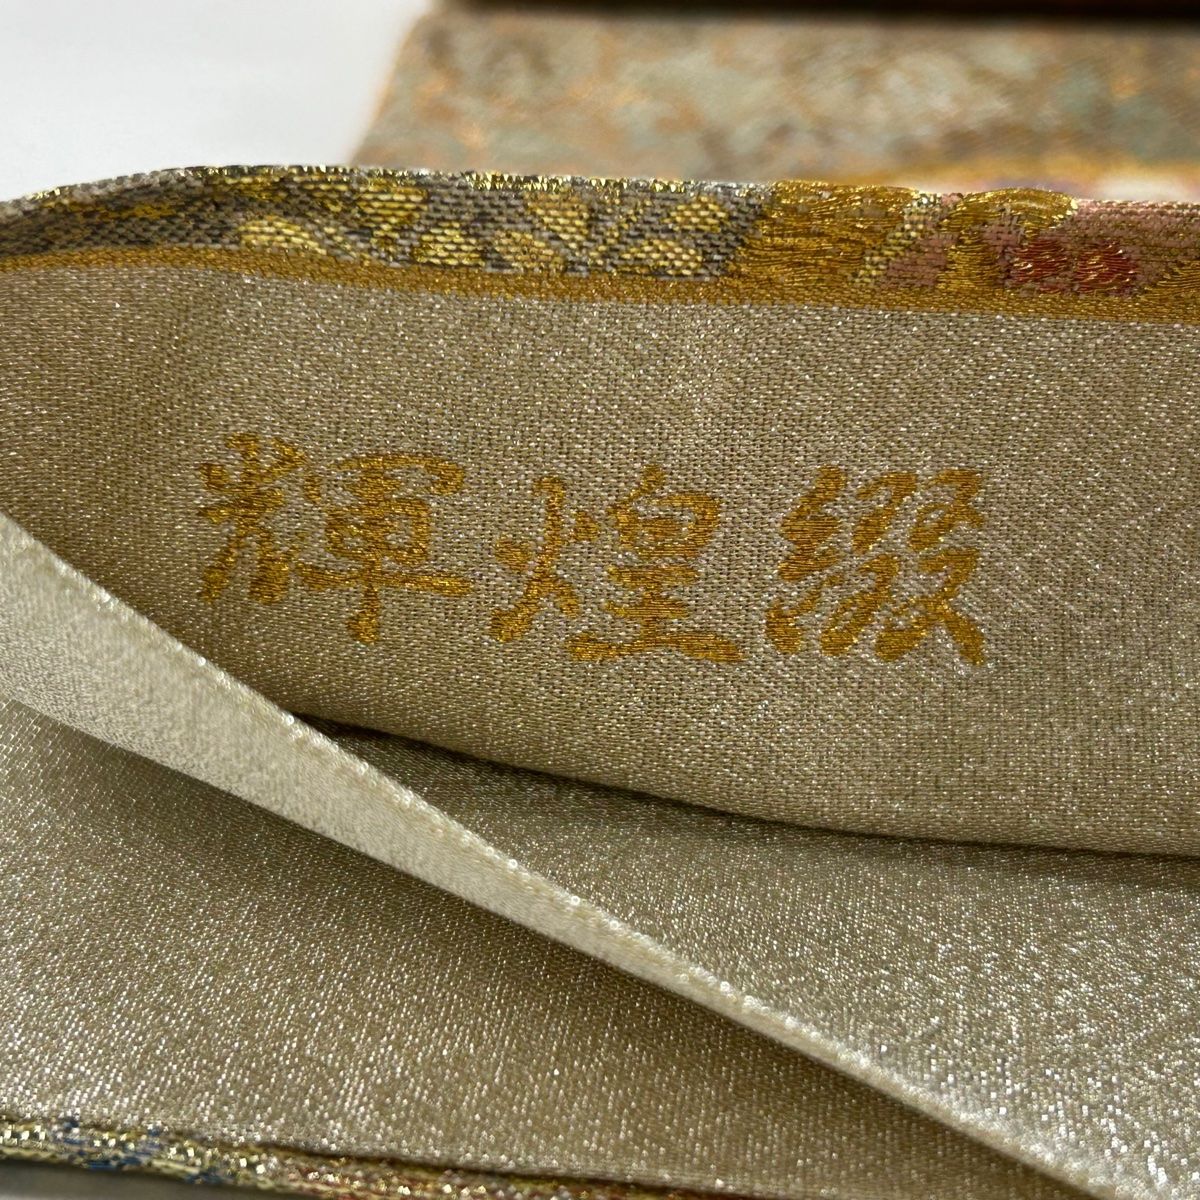 輝煌綴